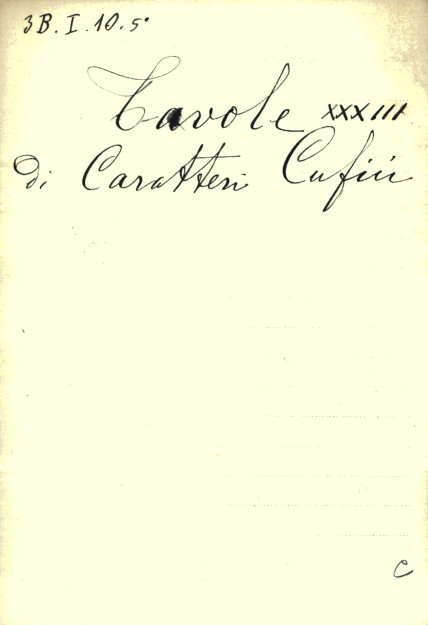 3B. I. 10. 5°
Tavole XXXIII
Di Caratteri Cufici
C